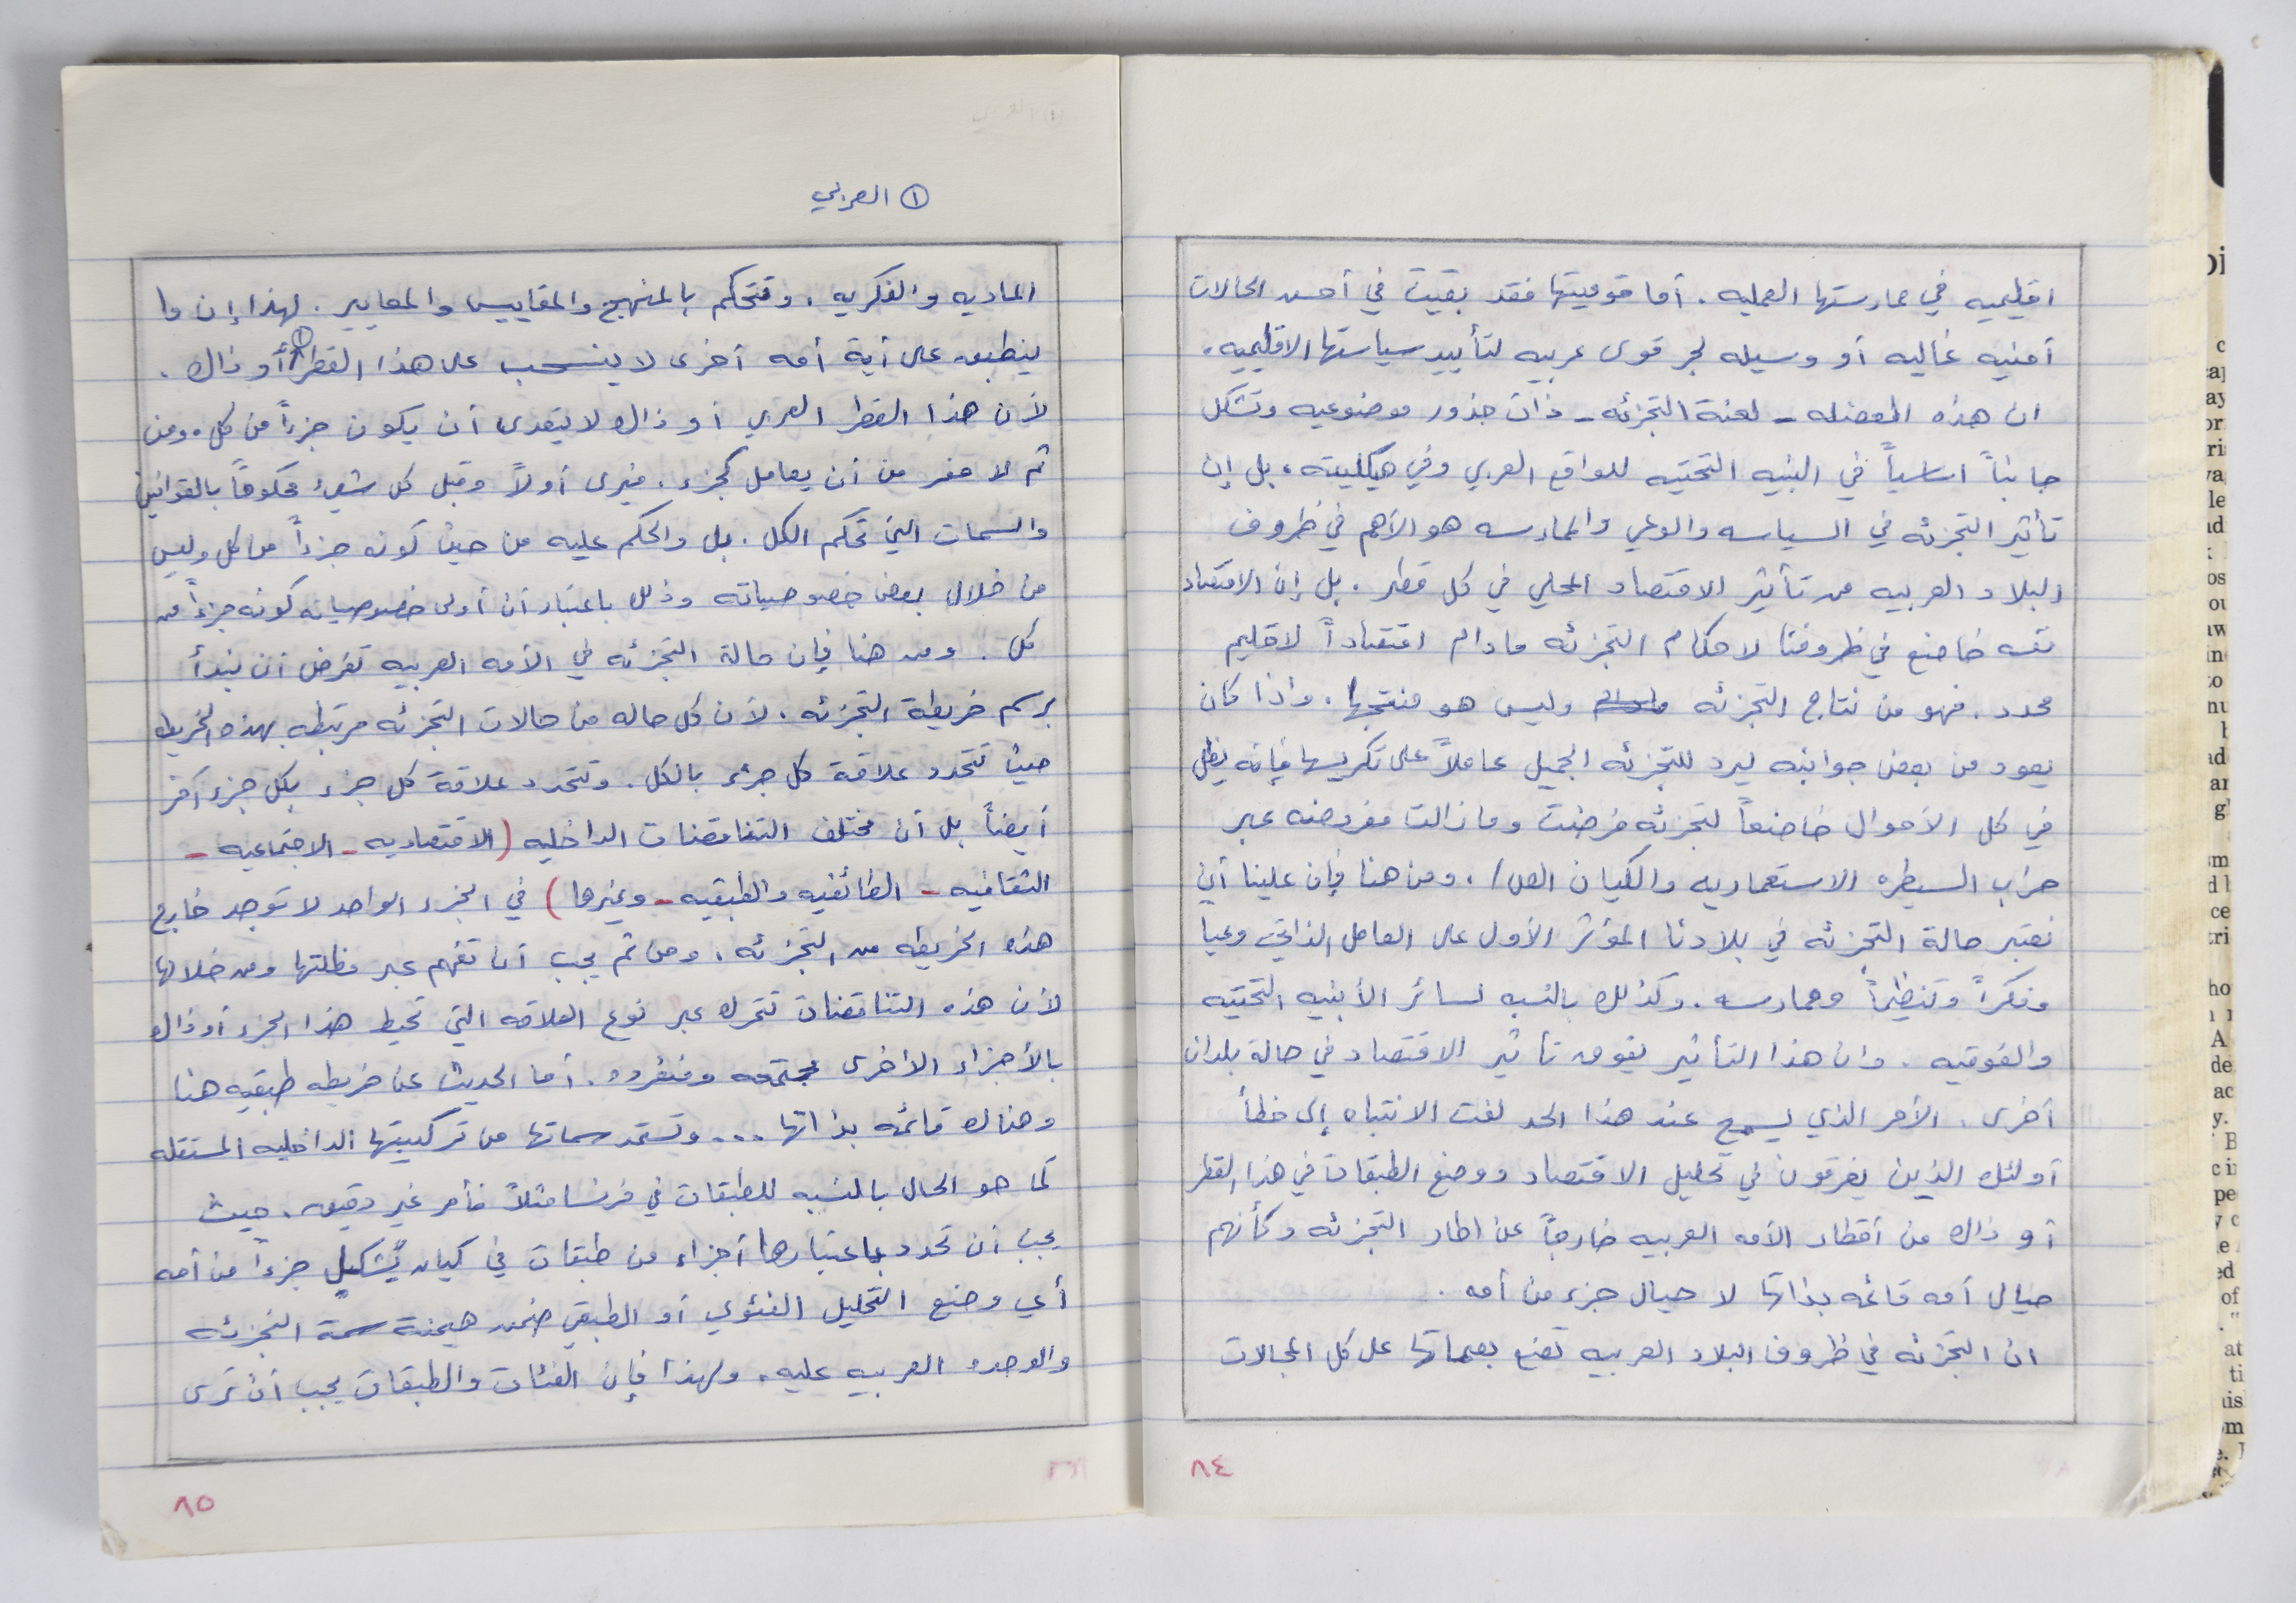 اقليميه في ممارستها العمليه. أما قوميتها فقد بقيت في أحسن الحالات
أمنيه غاليه أو وسيله لجر قوى عربيه لتأييد سياستها الاقليميه.
ان هذه المعضله - لعنة التجزئه - ذات جذور موضوعيه وتشكل
جانباً اساسياً في البنيه التحتيه للواقع العربي وفي هيكليته، بل إن
تأثير التجزئه في السياسه والوعي والممارسه هو الأهم في ظروف
البلاد العربيه من تأثير الاقتصاد المحلي في كل قطر. بل إن الاقتصاد
نفسه خاضع في ظروفنا لاحكام التجزئه مادام اقتصاداً لاقليم
محدد. فهو من نتاج التجزئه وليس هو منتجها. واذا كان
يعود من بعض جوانبه ليرد للتجزئه الجميل عاملاً على تكريسها فإنه يظل
في كل الأحوال خاضعاً لتجزئه فرضت وما زالت مفروضه عبر
حراب السيطره الاستعماريه والكيان الص/. ومن هنا فإن علينا أن
نعتبر حالة التجزئه في بلادنا المؤثر الأول على العامل الذاتي وعيا
وفكراً وتنظيماً وممارسه. وكذلك بالنسبه لسائر الأبنيه التحتيه
والفوقيه. وان هذا التأثير يفوق تأثير الاقتصاد في حالة بلدان
أخرى. الأمر الذي يسمح عند هذا الحد لفت الانتباه إلى خطأ
أولئك الذين يغرقون في تحليل الاقتصاد ووضع الطبقات في هذا القطر
أو ذاك من أقطار الأمه العربيه خارجاً عن اطار التجزئه وكأنهم
حيال أمه قائمه بذاتها لا حيال جزء من أمه.
ان التجزئه في ظروف البلاد العربيه تضع بصماتها على كل المجالات
٨٤
① العربي
الماديه والفكريه. وتتحكم بالمنهج والمقاييس والمعايير. لهذا إن ما
ينطبق على أية أمه أخرى لا ينسحب على هذا القطر ① أو ذاك.
لأن هذا القطر العربي أو ذاك لا يتعدى أن يكون جزءاً من كل. ومن
ثم لا مفر من أن يعامل كجزء. فيرى أولاً وقبل كل شيء محكوماً بالقوانين
والسمات التي تحكم الكل. بل والحكم عليه من حيث كونه جزءاً من كل وليس
من خلال بعض خصوصياته وذلك باعتبار أن أولى خصوصياته كونه جزءاً من
كل. ومن هنا فإن حالة التجزئه في الأمه العربيه تفرض أن نبدأ
برسم خريطة التجزئه. لأن كل حاله من حالات التجزئه مرتبطه بهذه الخريطه
حيث تتحدد علاقة كل جزء بالكل. وتتحدد علاقة كل جزء بكل جزء آخر
أيضاً بل أن مختلف التناقضات الداخليه (الاقتصاديه - الاجتماعيه -
الثقافيه - الطائفيه والطبقيه - وغيرها) في الجزء الواحد لا توجد خارج
هذه الخريطه من التجزئه، ومن ثم يجب أن تفهم عبر مظلتها ومن خلالها
لأن هذه التناقضات تتحرك عبر نوع العلاقه التي تحيط هذا الجزء أو ذاك
بالأجزاء الأخرى مجتمعه ومنفرده. أما الحديث عن خريطه طبقيه هنا
وهناك قائمه بذاتها ... وتستمد سماتها من تركيبتها الداخليه المستقله
كما هو الحال بالنسبه للطبقات في فرنسا مثلاً فأمر غير دقيق. حيث
يجب أن تحدد باعتبارها أجزاء من طبقات في كيان يُشكل جزءاً من أمه
أي وضع التحليل الفئوي أو الطبقي ضمن هيمنة سمة التجزئه
والوحده العربيه عليه. ولهذا فإن الفئات والطبقات يجب أن ترى
٨٥